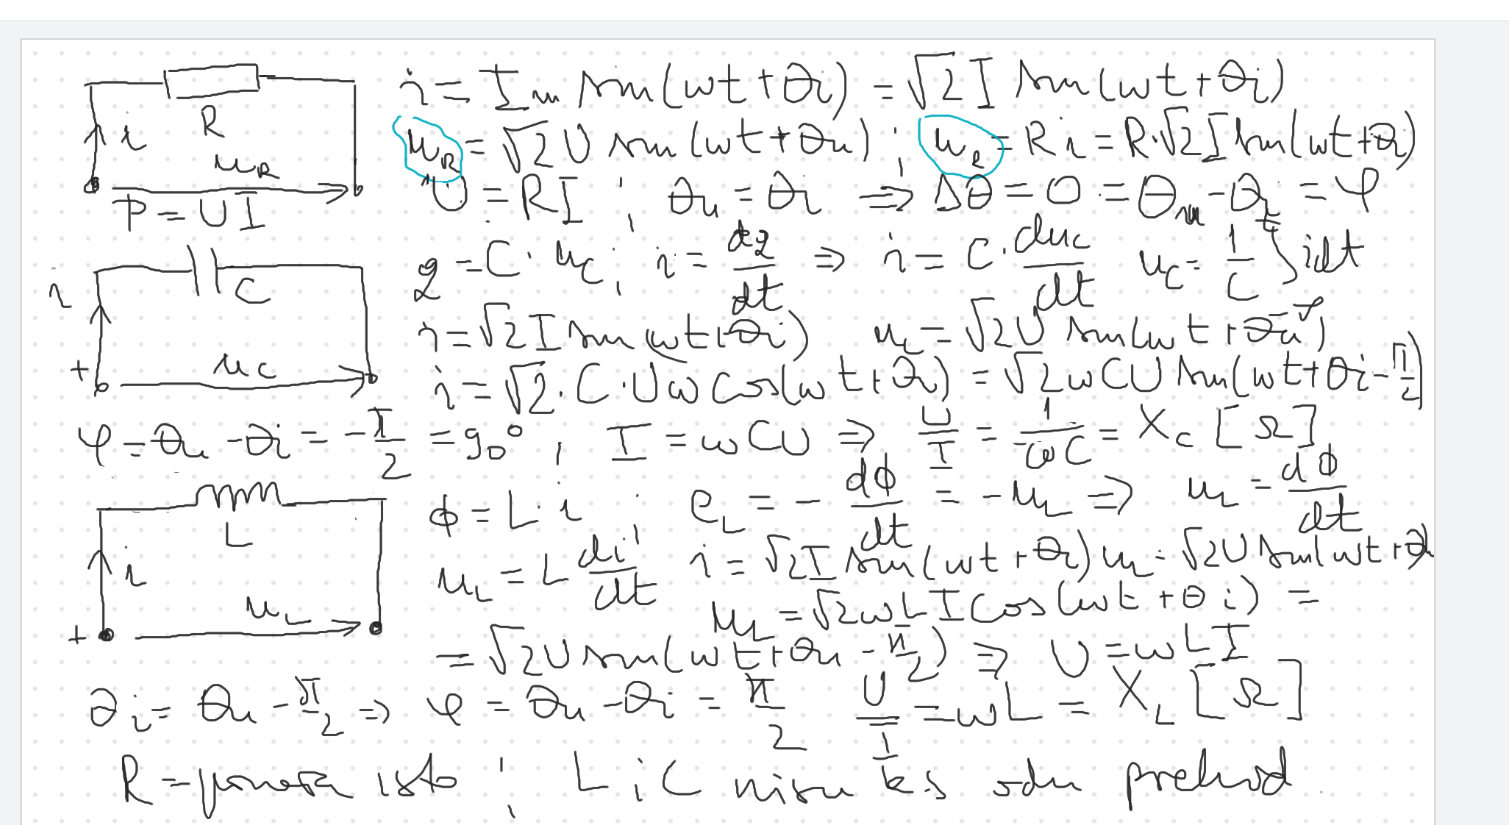 i = I_m sin(ωt + θi) = √2 I sin(ωt + θi)
R i u_R
u_R = √2 U sin(ωt + θu) ; u_R = R i = R·√2 I sin(ωt + θi)
U = RI ; θu = θi ⇒ Δθ = 0 = θu - θi = φ
P = U I
q = C · u_C , i = dq/dt ⇒ i = C · du_C/dt u_C = 1/C ∫ i dt
i C
i = √2 I sin(ωt + θi) u_C = √2 U sin(ωt + θu)
+ u_C
i = √2 · C · U ω cos(ωt + θi) = √2 ω C U sin(ωt + θi - π/2)
φ = θu - θi = -π/2 = 90° ; I = ωCU ⇒ U/I = 1/ωC = X_C [Ω]
L
ϕ = L · i ; e_L = - dϕ/dt = -u_L ⇒ u_L = dϕ/dt
i u_L = L di/dt i = √2 I sin(ωt + θi) u_L = √2 U sin(ωt + θ
+ u_L
u_L = √2 ω L I cos(ωt + θi) =
= √2 U sin(ωt + θu - π/2) ⇒ U = ωLI
θi = θu - π/2 ⇒ φ = θu - θi = π/2 U/I = ωL = X_L [Ω]
R = isto ; L i C nisu